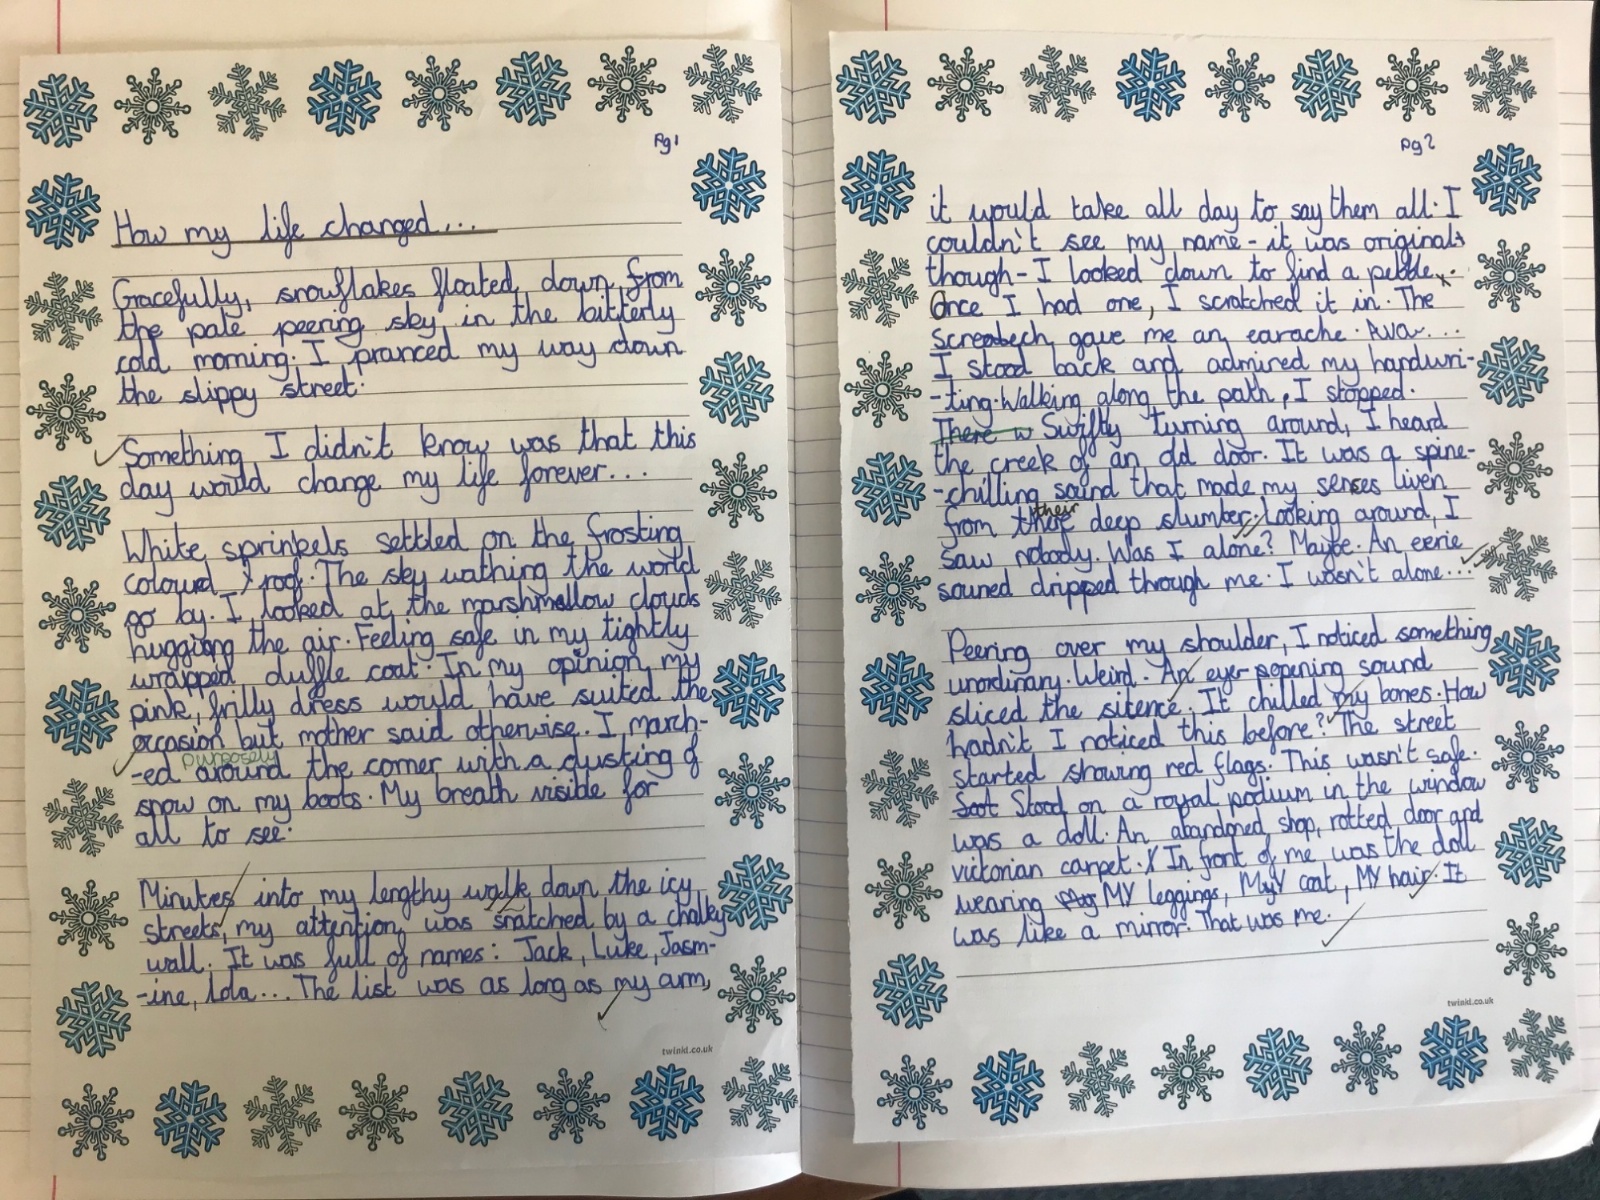 Pg1
How my life changed...
Gracefully, snowflakes floated down from
the pale peering sky, in the bitterly
cold morning. I pranced my way down
the slippy street.
Something I didn't know was that this
day would change my life forever...
White sprinkels settled on the frosting
coloured roof. The sky wathing the world
go by. I looked at the marshmellow clouds
huggiong the air. Feeling safe in my tightly
wrapped, duffle coat. In my opinion, my
pink, frilly dress would have suited the
occasion but mother said otherwise. I march-
purposely
-ed around the corner with a dusting of
snow on my boots. My breath visible for
all to see.
Minutes into my lengthy walk down the icy
streets, my attention, was snatched by a chalky
wall. It was full of names: Jack, Luke, Jasm-
-ine, Lola... The list was as long as my arm,
twinkl.co.uk
pg2
it would take all day to say them all. I
couldn't see my name - it was original
though - I looked down to find a pebble.
Once I had one, I scratched it in. The
screabech gave me an earache. Ava...
I stood back and admired my handwri-
-ting. Walking along the path, I stopped.
There w Swiftly turning around, I heard
the creek of an old door. It was a spine-
-chilling sound that made my senses liven
their
from there deep slumber. Looking around, I
saw nobody. Was I alone? Maybe. An eerie
souned dripped through me. I wasn't alone...
Peering over my shoulder, I noticed something
unordinary. Weird. An eye-popening sound
sliced the sitence. It chilled my bones. How
hadn't I noticed this before? The street
started showing red flags. This wasn't safe.
Soot Stood on a royal podium in the window
was a doll. An abandoned, shop, rotted door and
victorian carpet. In front of me was the doll
wearing MY leggings, MY coat, MY hair. It
was like a mirror. That was me.
twinkl.co.uk